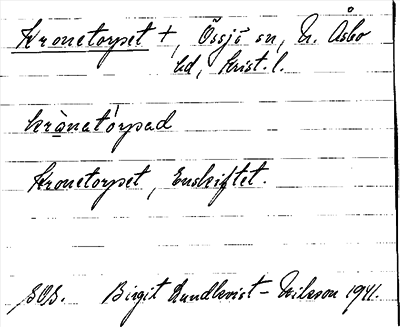 Kronetorpet +, Össjö sn, N. Åsbo
hd, Krist. l.
krònatórpad
Kronetorpet, Enskiftet.
Birgit Lundkvist-Nilsson 1941.